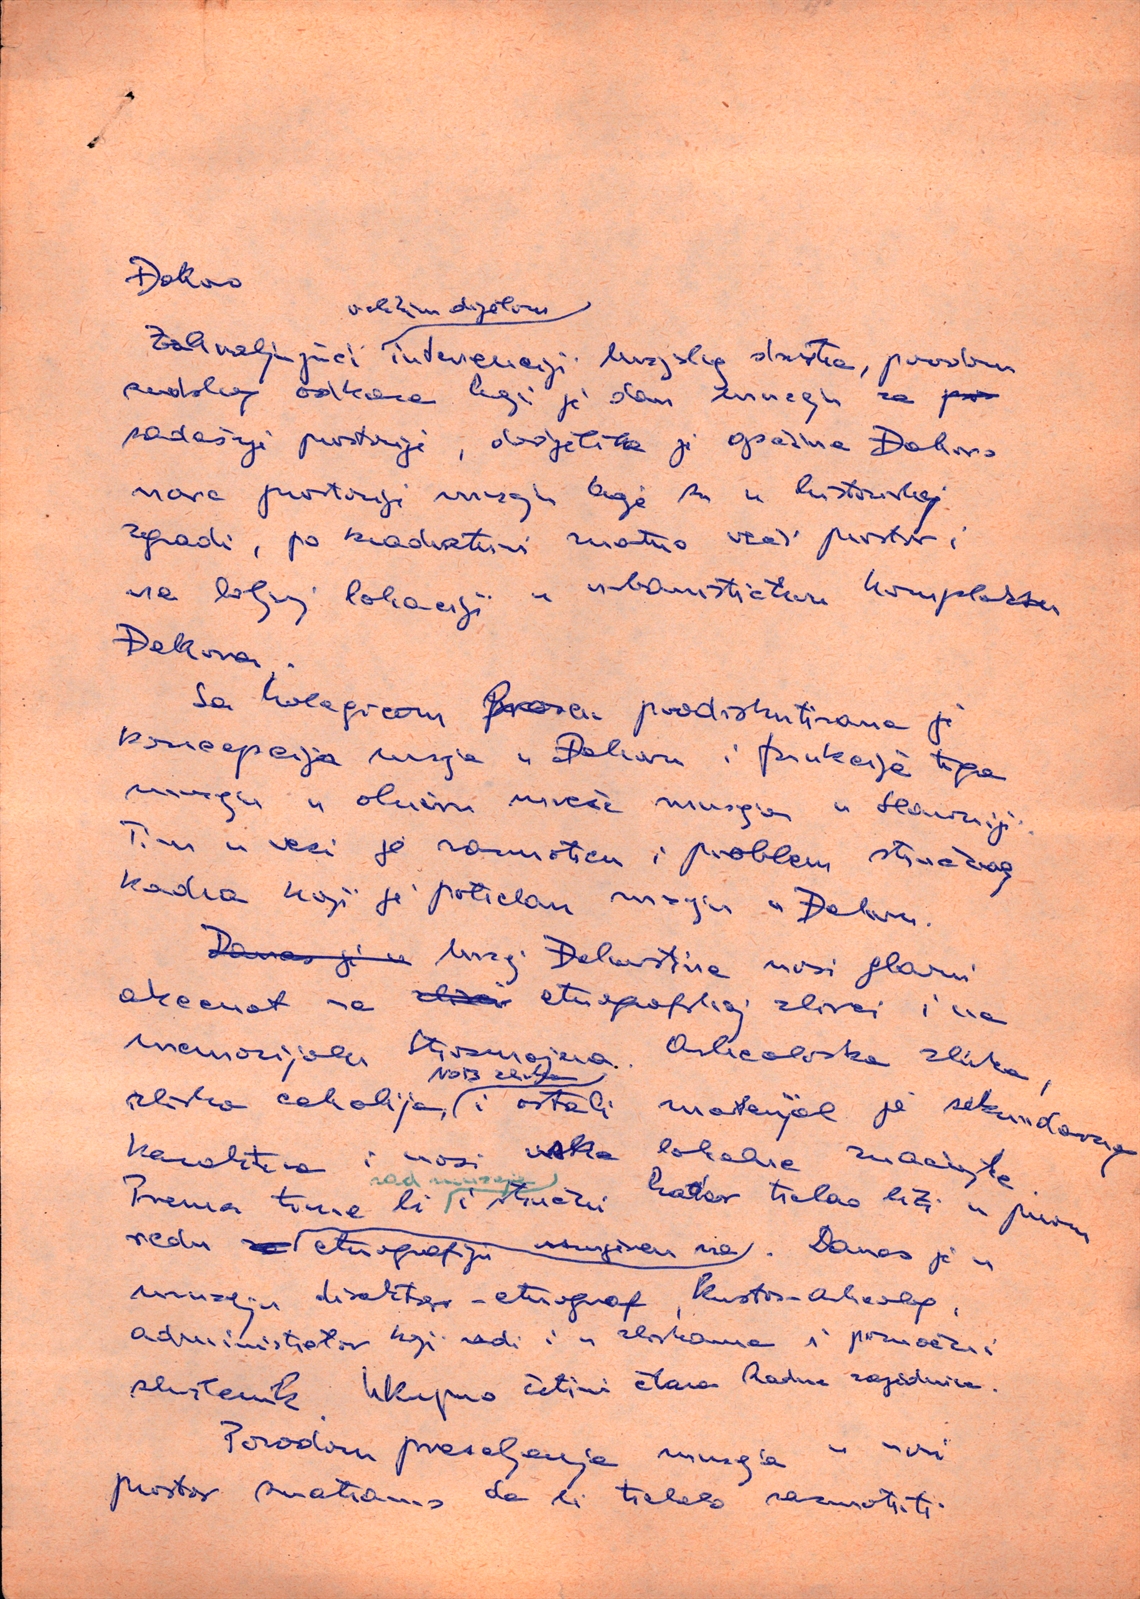 Đakovo
većim dijelom
Zahvaljujući intervenciji muzejske službe, povodom
sudskog otkaza koji je dan muzeju za
sadašnje prostorije, dodjelila je općina Đakovo
nove prostorije muzeju koje su u historijskoj
zgradi, po kvadraturi znatno veći prostor i
na boljoj lokaciji u urbanističkom kompleksu
Đakova.
Sa kolegicom prodiskutirana je
koncepcija muzeja u Đakovu i funkcija toga
muzeja u okviru mreže muzeja u Slavoniji.
Tim u vezi je razmotren i problem stručnog
kadra koji je potreban muzeju u Đakovu.
Danas je u Muzej Đakovštine nosi glavni
akcenat na etnografskoj zbirci i na
memorijalu Strossmajera. Arheološka zbirka,
NOB zbirka
zbirka cehalija, i ostali materijal je sekundarnog
karaktera i nosi uske lokalne značajke.
rad muzeja
Prema tome bi i stručni kadar trebao biti u prvom
redu etnografiji usmjeren na. Danas je u
muzeju direktor - etnograf, kustos - arheolog,
administrator koji radi i u zbirkama i pomoćni
službenik. Ukupno četiri člana Radne zajednice.
Povodom preseljenja muzeja u novi
prostor smatramo da bi trebalo razmotriti